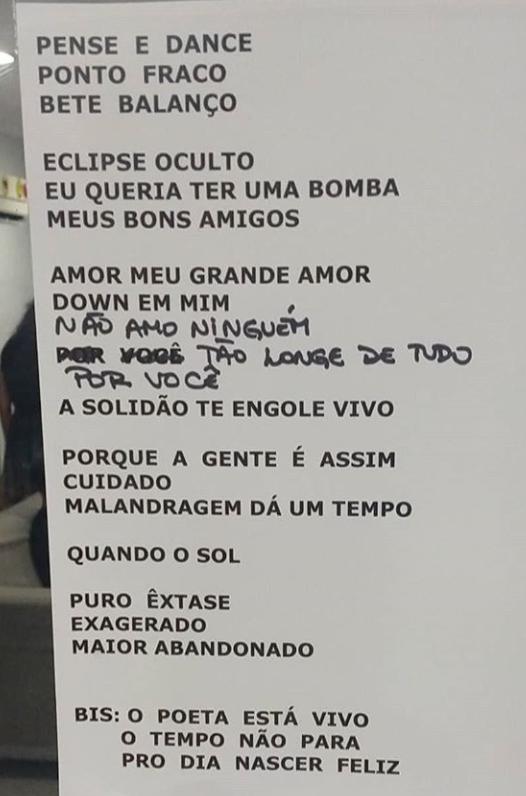 PENSE E DANCE
PONTO FRACO
BETE BALANÇO
ECLIPSE OCULTO
EU QUERIA TER UMA BOMBA
MEUS BONS AMIGOS
AMOR MEU GRANDE AMOR
DOWN EM MIM
NÃO AMO NINGUÉM
POR VOCÊ TÃO LONGE DE TUDO
POR VOCÊ
A SOLIDÃO TE ENGOLE VIVO
PORQUE A GENTE É ASSIM
CUIDADO
MALANDRAGEM DÁ UM TEMPO
QUANDO O SOL
PURO ÊXTASE
EXAGERADO
MAIOR ABANDONADO
BIS: O POETA ESTÁ VIVO
O TEMPO NÃO PARA
PRO DIA NASCER FELIZ